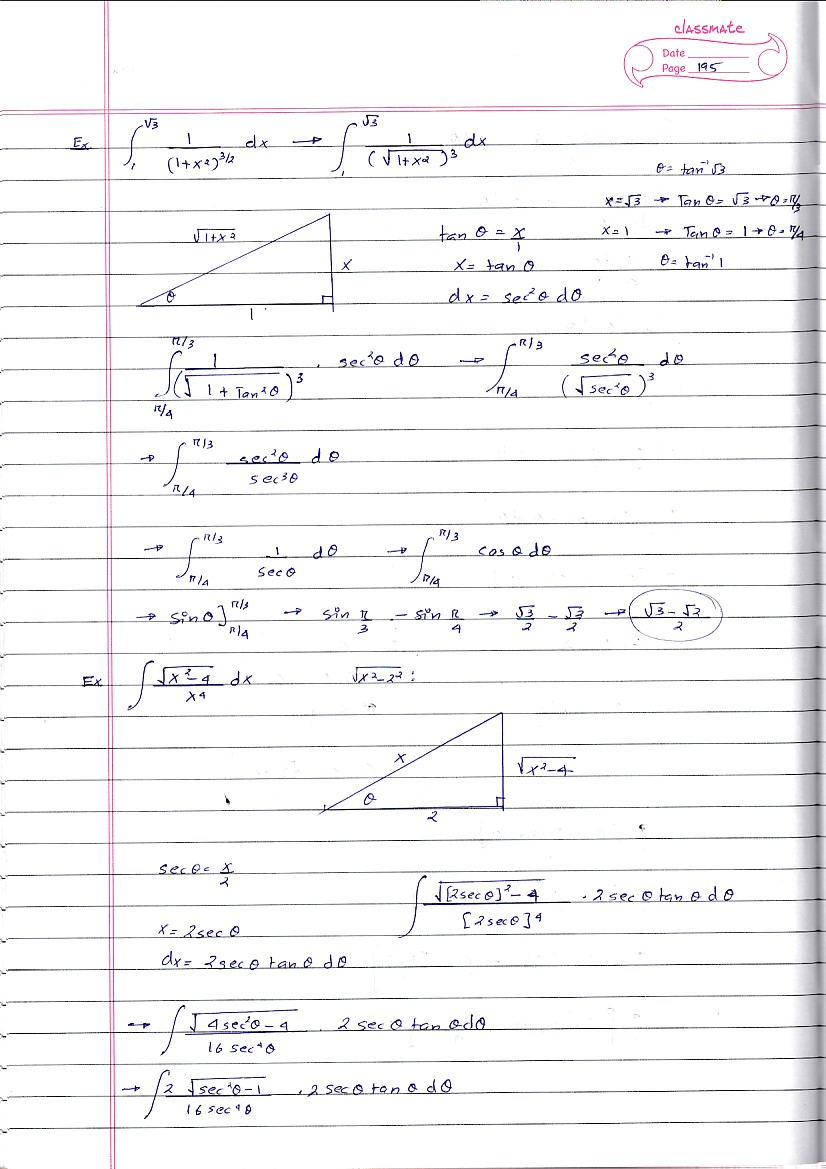 classmate
Date
Page 195
Ex ∫₁^√3 1/(1+x²)^3/2 dx → ∫₁^√3 1/(√1+x²)³ dx
θ = tan⁻¹ √3
x=√3 → Tan θ = √3 → θ = π/3
√1+x² tan θ = x/1 x=1 → Tan θ = 1 → θ = π/4
x x = tan θ θ = tan⁻¹ 1
θ dx = sec²θ dθ
1
∫_π/4^π/3 1/(√1 + Tan²θ)³ . sec²θ dθ → ∫_π/4^π/3 sec²θ/(√sec²θ)³ dθ
→ ∫_π/4^π/3 sec²θ/sec³θ dθ
→ ∫_π/4^π/3 1/secθ dθ → ∫_π/4^π/3 cos θ dθ
→ sinθ]_π/4^π/3 → sin π/3 - sin π/4 → √3/2 - √2/2 → √3 - √2/2
Ex ∫ √x²-4/x⁴ dx √x²-2² :
x √x²-4
θ
2
secθ = x/2
∫ √[2secθ]²-4/[2secθ]⁴ . 2secθ tanθ dθ
x = 2secθ
dx = 2secθ tanθ dθ
→ ∫ √4sec²θ-4/16 sec⁴θ . 2 secθ tanθdθ
→ ∫ 2 √sec²θ-1/16 sec⁴θ . 2 secθ tanθ dθ